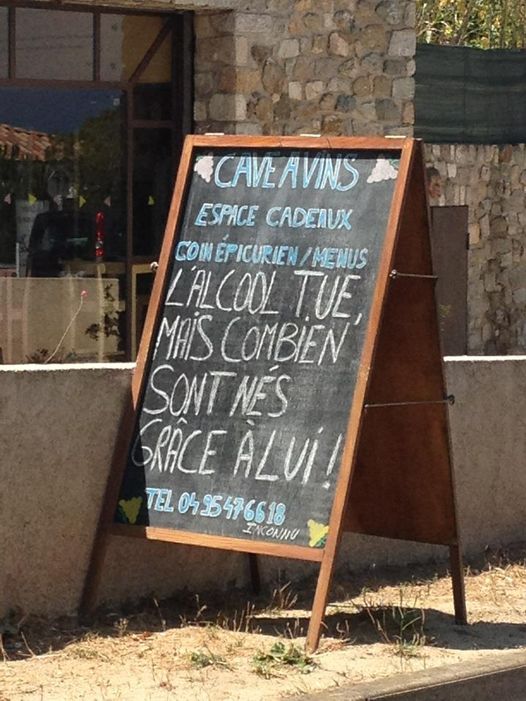 CAVE A VINS
ESPACE CADEAUX
COIN ÉPICURIEN / MENUS
L'ALCOOL TUE,
MAIS COMBIEN
SONT NÉS
GRÂCE À LUI !
TEL 04 95 47 66 18
INCONNU